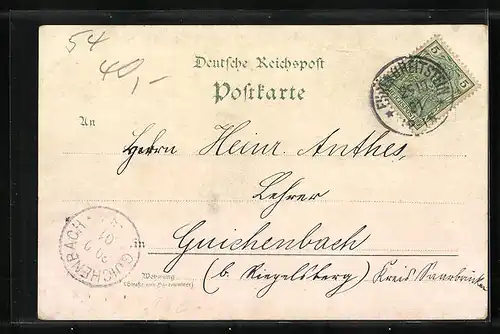 54
40,-
Deutsche Reichspost
Postkarte
5 5
EHRENBREITSTEIN
An
Herrn Heinr. Anthes,
Lehrer
in Guichenbach
GUICHENBACH
Wohnung
(Straße und Hausnummer)
(b. Riegelsberg) Kreis Saarbrücken